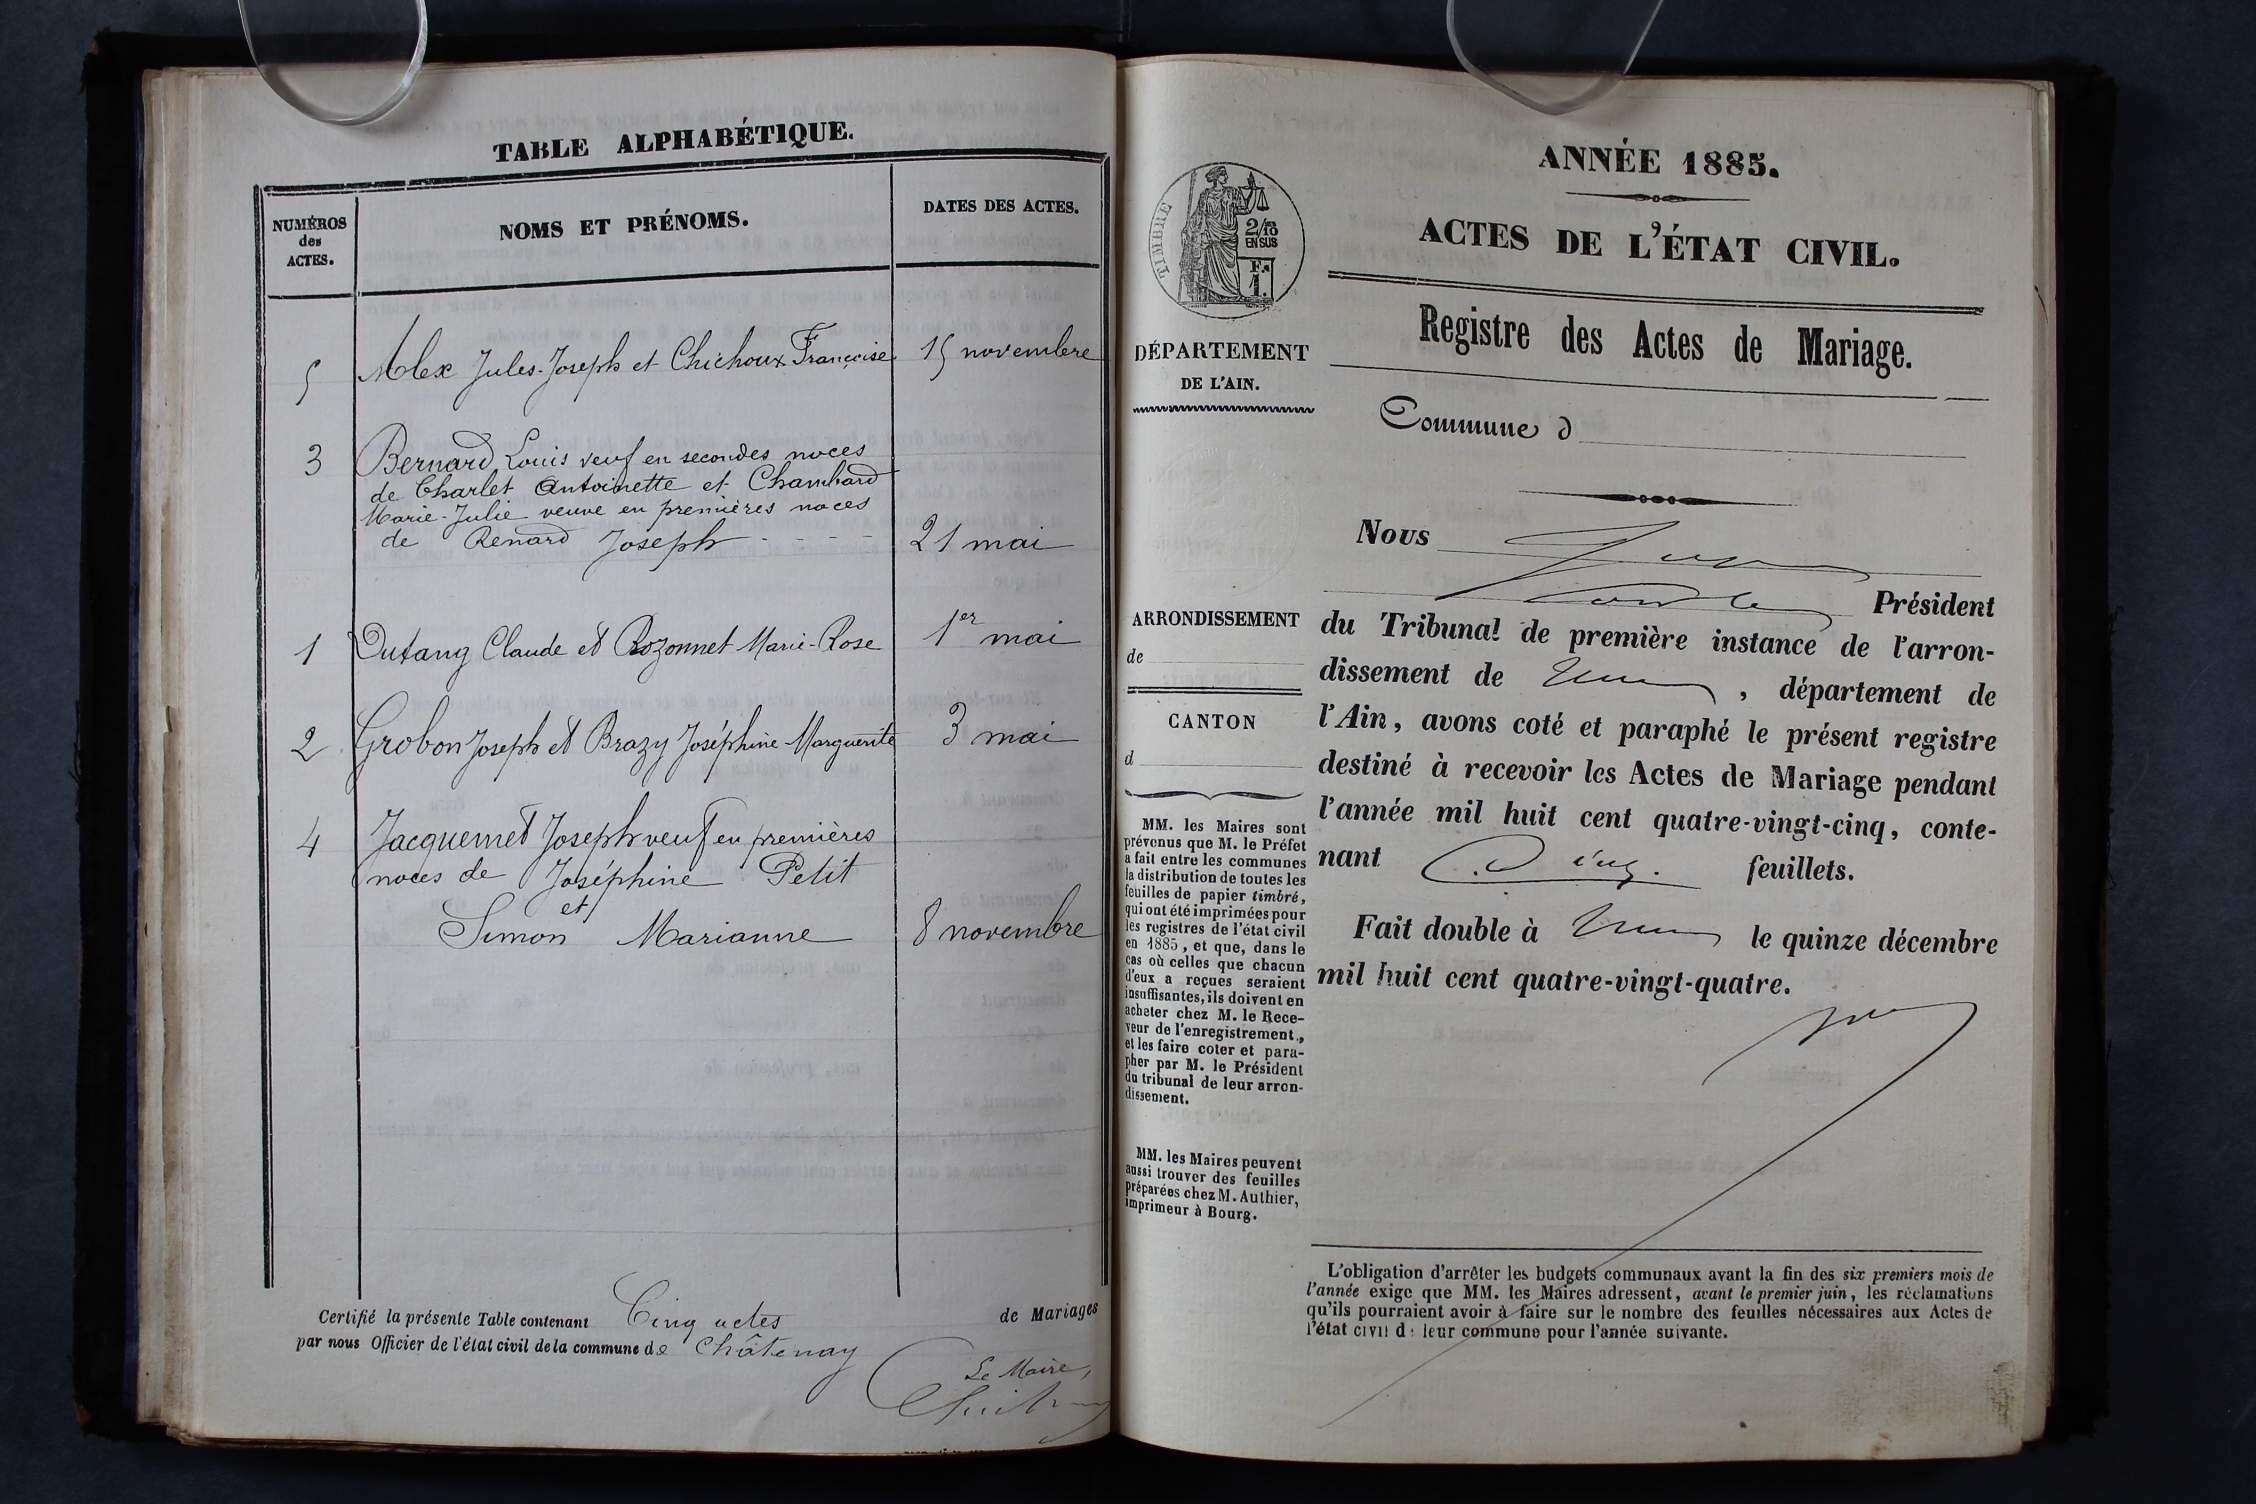 TABLE ALPHABÉTIQUE.
NUMÉROS
des
ACTES.
NOMS ET PRÉNOMS.
DATES DES ACTES.
5 Alex Jules-Joseph et Chichoux Françoise 15 novembre
3 Bernard Louis veuf en secondes noces
de Charlet Antoinette et Chambard
Marie-Julie veuve en premières noces
de Renard Joseph - - - - 21 mai
1 Dutang Claude et Rozonnet Marie-Rose 1er mai
2 Grobon Joseph et Brazy Joséphine Marguerite 3 mai
4 Jacquemet Joseph veuf en premières
noces de Joséphine Petit
et
Simon Marianne 8 novembre
Certifié la présente Table contenant Cinq actes de Mariages
par nous Officier de l'état civil de la commune de Châtenay
Le Maire,
TIMBRE
2/10
EN SUS
Fc
1.
DÉPARTEMENT
DE L'AIN.
ARRONDISSEMENT
de
CANTON
d
MM. les Maires sont
prévenus que M. le Préfet
a fait entre les communes
la distribution de toutes les
feuilles de papier timbré,
qui ont été imprimées pour
les registres de l'état civil
en 1885, et que, dans le
cas où celles que chacun
d'eux a reçues seraient
insuffisantes, ils doivent en
acheter chez M. le Rece-
veur de l'enregistrement,
et les faire coter et para-
pher par M. le Président
du tribunal de leur arron-
dissement.
MM. les Maires peuvent
aussi trouver des feuilles
préparées chez M. Authier,
imprimeur à Bourg.
ANNÉE 1885.
ACTES DE L'ÉTAT CIVIL.
Registre des Actes de Mariage.
Commune d
Nous
Président
du Tribunal de première instance de l'arron-
dissement de , département de
l'Ain, avons coté et paraphé le présent registre
destiné à recevoir les Actes de Mariage pendant
l'année mil huit cent quatre-vingt-cinq, conte-
nant Cinq feuillets.
Fait double à le quinze décembre
mil huit cent quatre-vingt-quatre.
L'obligation d'arrêter les budgets communaux avant la fin des six premiers mois de
l'année exige que MM. les Maires adressent, avant le premier juin, les réclamations
qu'ils pourraient avoir à faire sur le nombre des feuilles nécessaires aux Actes de
l'état civil de leur commune pour l'année suivante.